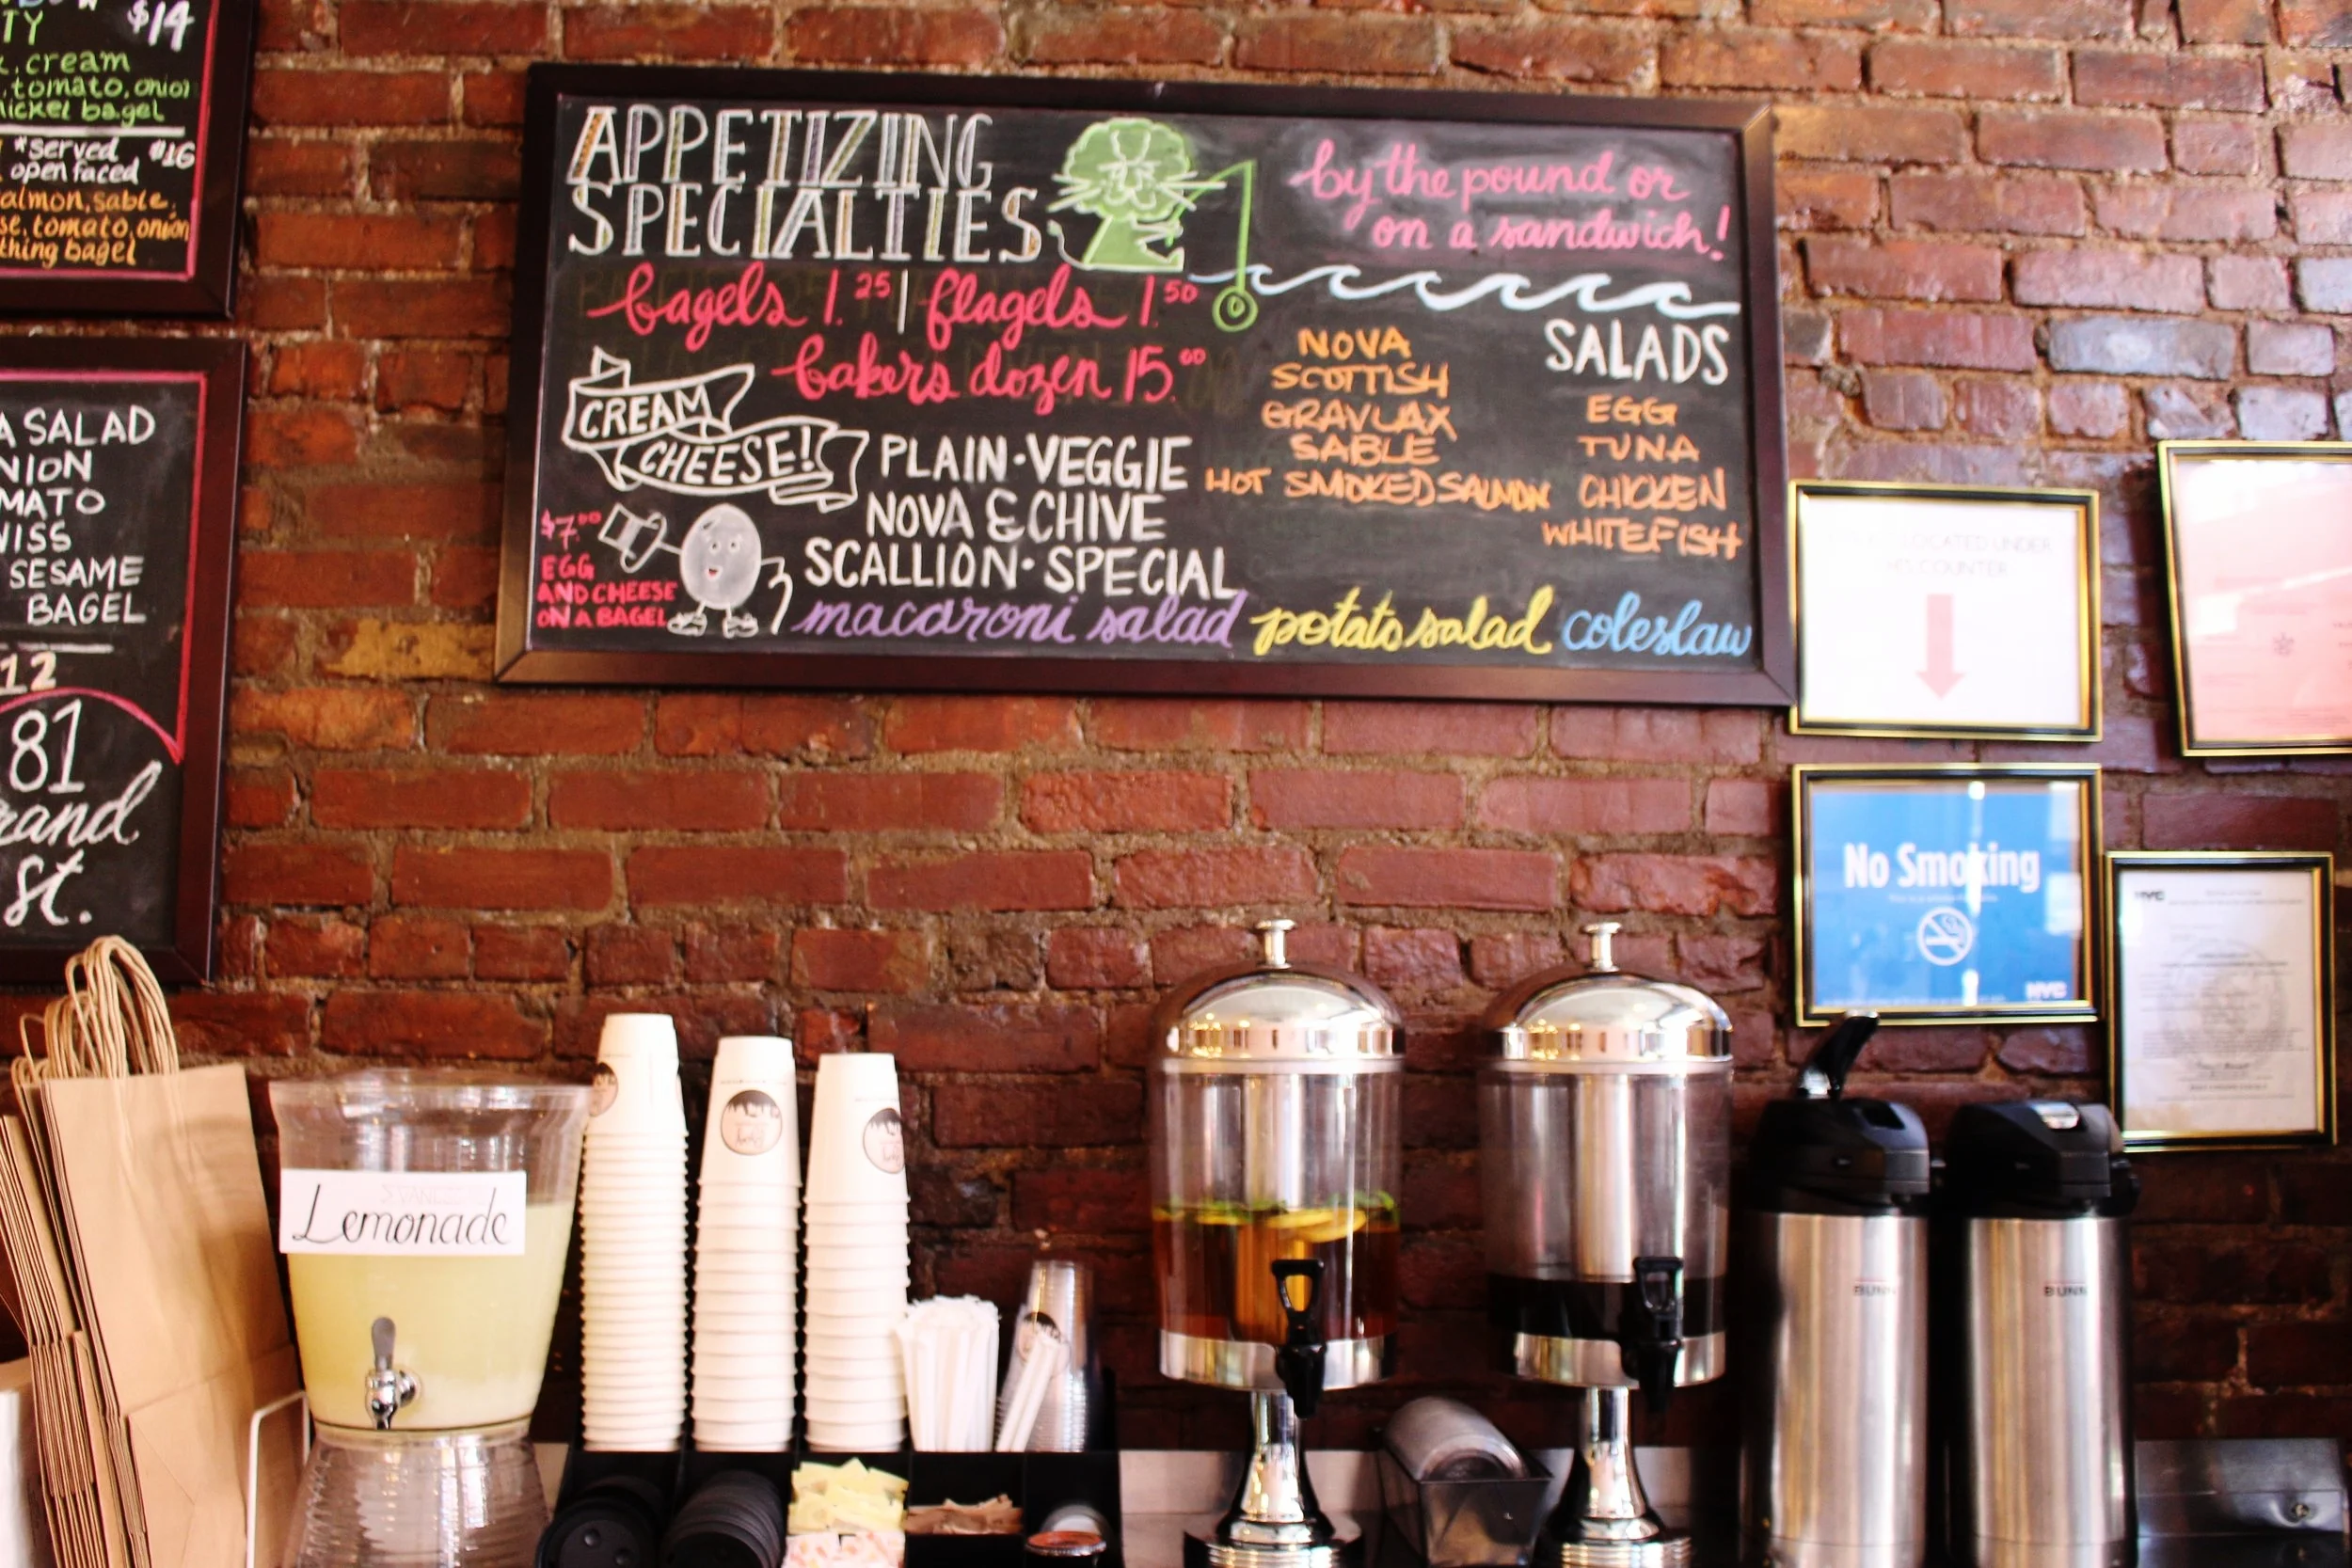 $14
TY
cream
tomato, onion
bagel
*served $16
open faced
salmon, sable,
tomato, onion
thing bagel
SALAD
NION
MATO
WISS
SESAME
BAGEL
12
81
rand
st.
APPETIZING
SPECIALTIES
bagels 1.25 | flagels 1.50
bakers dozen 15.00
CREAM
CHEESE!
PLAIN · VEGGIE
NOVA & CHIVE
SCALLION · SPECIAL
$7.00
EGG
AND CHEESE
ON A BAGEL
by the pound or
on a sandwich!
NOVA
SCOTTISH
GRAVLAX
SABLE
HOT SMOKED SALMON
SALADS
EGG
TUNA
CHICKEN
WHITEFISH
macaroni salad potato salad coleslaw
LOCATED UNDER
COUNTER
No Smoking
NYC
NYC
Lemonade
BUNN
BUNN